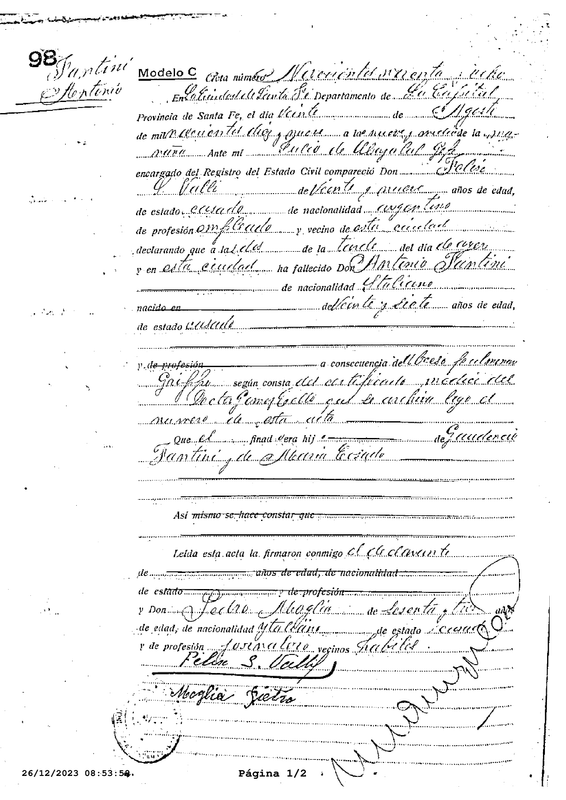 98
Fantini
Antonio
Modelo C Acta número Novecientos noventa y ocho
En la Ciudad de Santa Fe Departamento de La Capital,
Provincia de Santa Fe, el dia veinte de Agosto
de mil novecientos diez y nueve a las nueve y media de la ma-
ñana Ante mi Julio de
encargado del Registro del Estado Civil compareció Don Felix
S. Valli de Veinte y nueve años de edad,
de estado casado de nacionalidad argentino
de profesión empleado y vecino de esta ciudad
declarando que a las dos de la tarde del dia de ayer
y en esta ciudad ha fallecido Don Antonio Fantini
de nacionalidad Italiano
nacido en de Veinte y siete años de edad,
de estado casado
y de profesión a consecuencia de Abceso pulmonar
Grippe según consta del certificado medico del
Doctor que se archiva bajo el
numero de esta acta
Que el finad o era hij o de Gaudencio
Fantini y de Maria
Asi mismo se hace constar que
Leida esta acta la firmaron conmigo el declarante
de años de edad, de nacionalidad
de estado y de profesión
y Don Pedro Moglia de Sesenta y tres años
de edad, de nacionalidad ytaliano de estado casado
y de profesión Jornalero vecinos habiles.
Felix S. Valli
Moglia Pietro
26/12/2023 08:53:58 Página 1/2